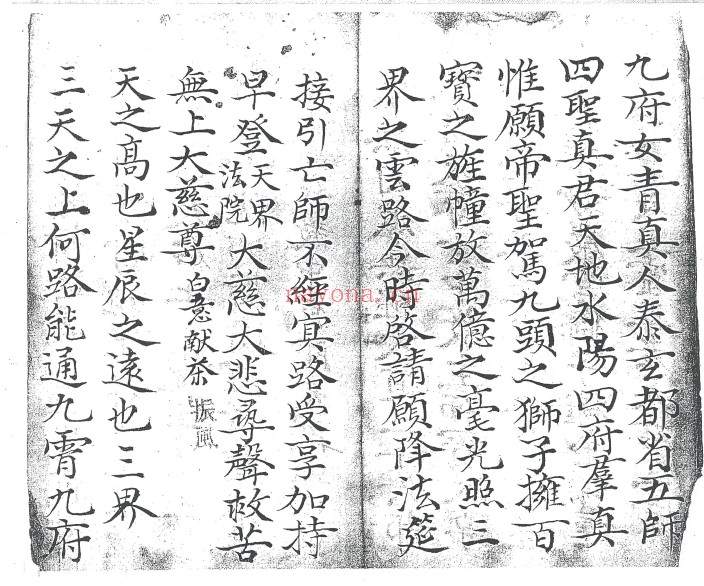 九府女青真人泰玄都省五師
四聖真君天地水陽四府羣真
惟願帝聖駕九頭之獅子擁百
寶之旌幢放萬億之毫光照三
界之雲路今時啓請願降法筵
接引亡師不經冥路受享加持
早登天界法院大慈大悲尋聲救苦
無上大慈尊 白意献茶
天之高也星辰之遠也三界
三天之上何路能通九霄九府